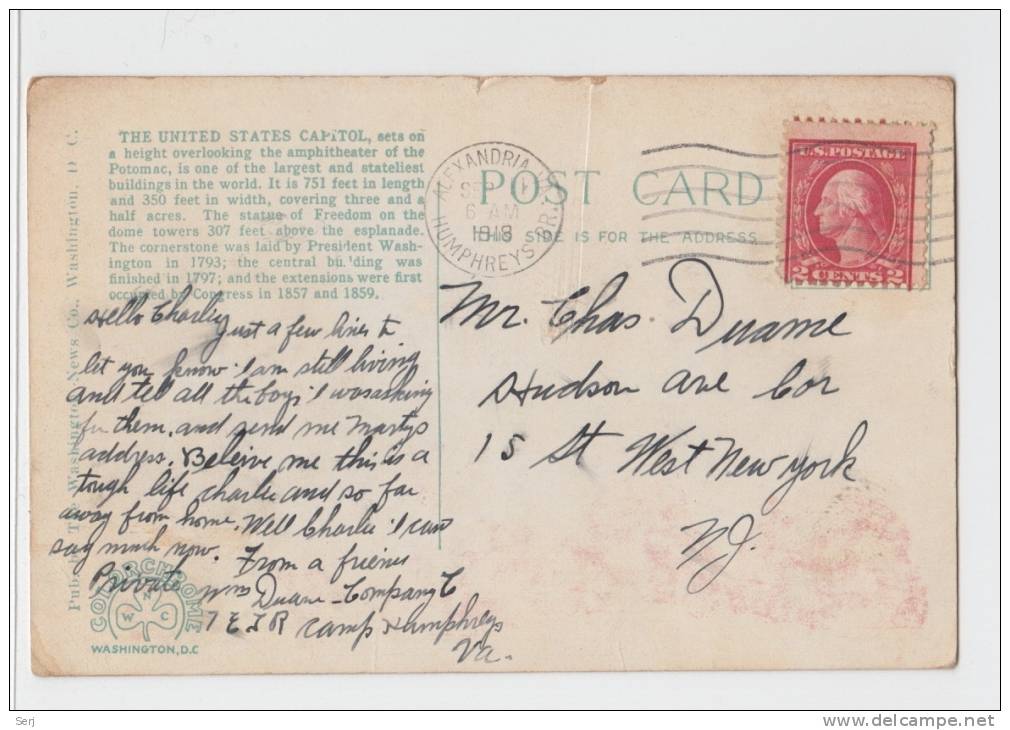 THE UNITED STATES CAPITOL, sets on
a height overlooking the amphitheater of the
Potomac, is one of the largest and stateliest
buildings in the world. It is 751 feet in length
and 350 feet in width, covering three and a
half acres. The statue of Freedom on the
dome towers 307 feet above the esplanade.
The cornerstone was laid by President Wash-
ington in 1793; the central building was
finished in 1797; and the extensions were first
occupied by Congress in 1857 and 1859.
Pub. by The Washington News Co., Washington, D. C.
POST CARD
THIS SIDE IS FOR THE ADDRESS
ALEXANDRIA
6 AM
1918
HUMPHREYS BR.
U.S. POSTAGE
2 CENTS 2
Hello Charley
just a few lines to
let you know I am still living
and tell all the boys I was asking
for them, and send me Martys
address. Beleive me this is a
tough life charlie and so far
away from home. Well Charlie I cant
say much now. From a friend
Private Wm Duane - Company C
7 E T R Camp Humphreys
Va.
Mr. Chas. Duame
Hudson Ave Cor
15 St West New York
N J.
COLORCHROME
W N C
WASHINGTON, D.C
Serj
www.delcampe.net